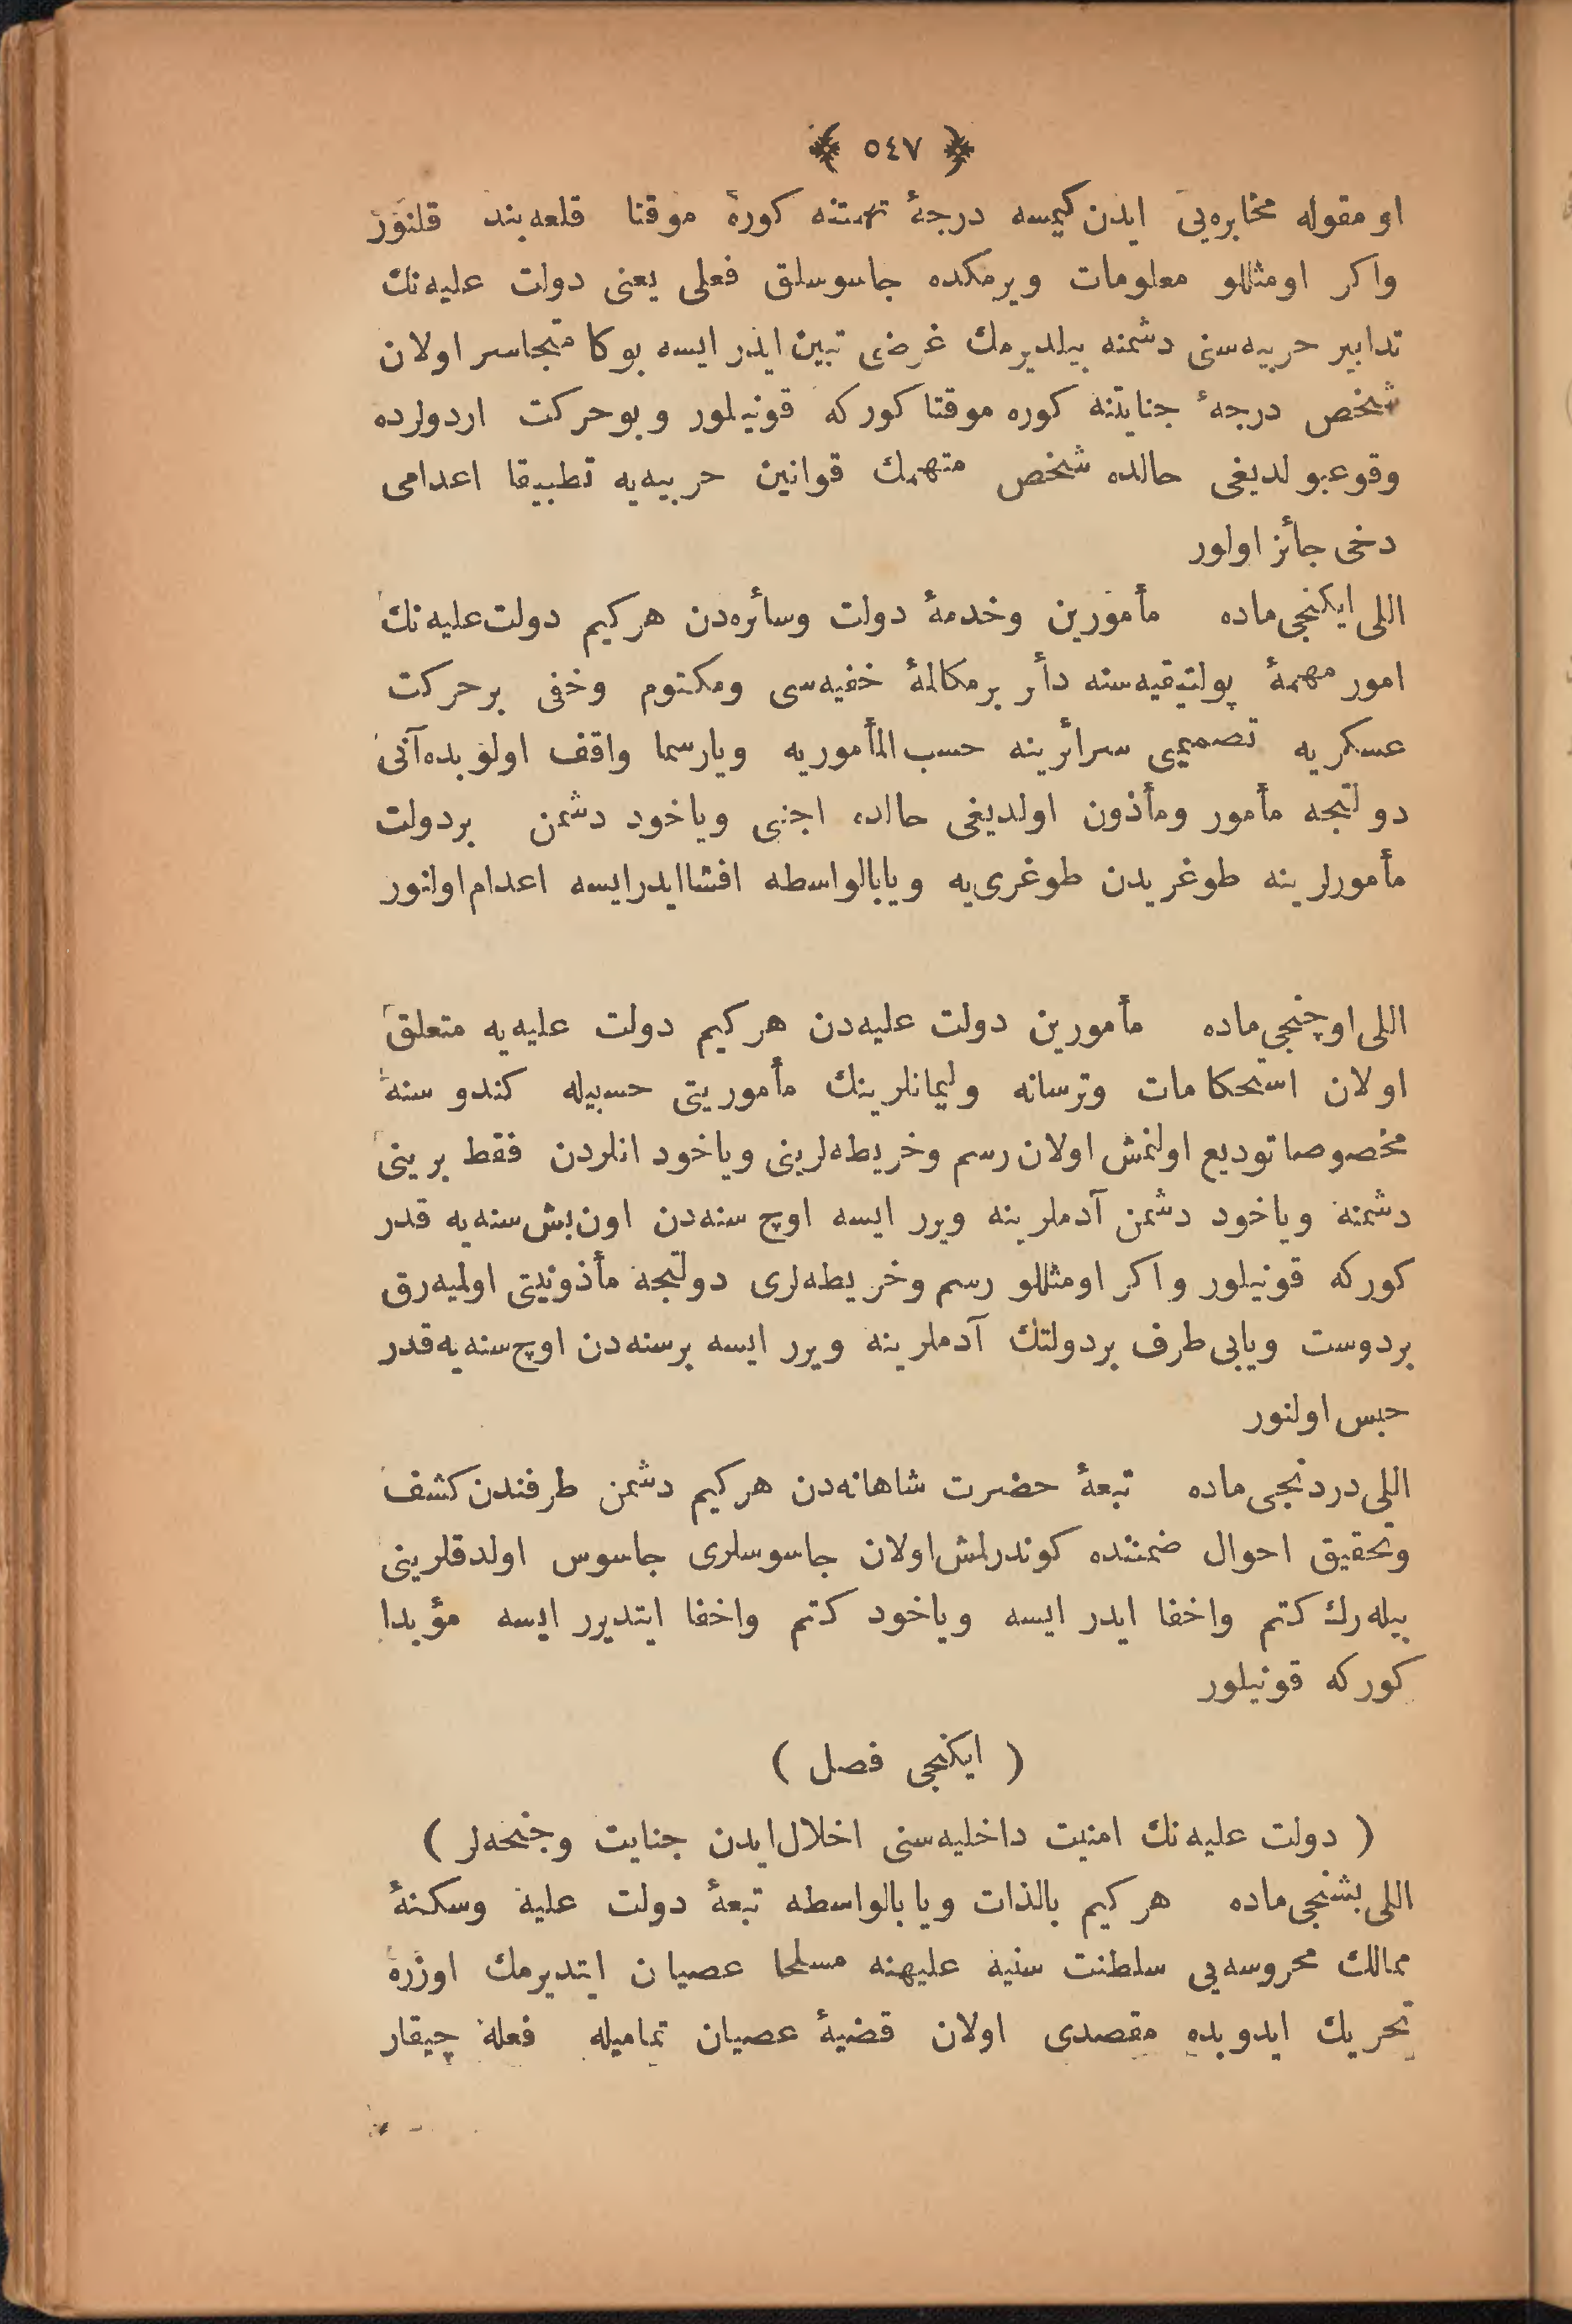 ﴿ ٥٤٧ ﴾
او مقوله مخابره‌یی ایدن كیمسه درجۀ تهمتنه كوره موقتا قلعه‌بند قلنور
واكر اومثللو معلومات ویرمكده جاسوسلق فعلی یعنی دولت علیه‌نك
تدابیر حربیه‌سنی دشمنه بیلدیرمك غرضی تبین ایدر ایسه بوكا متجاسر اولان
شخص درجۀ جنایتنه كوره موقتا كوركه قونیلور و بوحركت اردولرده
وقوعبولدیغی حالده شخص متهمك قوانین حربیه‌یه تطبیقا اعدامی
دخی جائز اولور
اللی ایكنجی ماده مأمورین وخدمۀ دولت وسائره‌دن هركیم دولت علیه‌نك
امور مهمۀ پولتیقیه‌سنه دائر برمكالمۀ خفیه‌سی ومكتوم وخفی برحركت
عسكریه تصمیمی سرائرینه حسب المأموریه ویارسما واقف اولوبده آنی
دولتجه مأمور ومأذون اولدیغی حالده اجنبی ویاخود دشمن بردولت
مأمورلرینه طوغریدن طوغری‌یه ویابالواسطه افشاایدرایسه اعدام اولنور
اللی اوچنجی ماده مأمورین دولت علیه‌دن هركیم دولت علیه‌یه متعلق
اولان استحكامات وترسانه ولیمانلرینك مأموریتی حسبیله كندوسنه
مخصوصا تودیع اولنمش اولان رسم وخریطه‌لرینی ویاخود انلردن فقط برینی
دشمنه ویاخود دشمن آدملرینه ویرر ایسه اوچ سنه‌دن اون‌بش سنه‌یه قدر
كوركه قونیلور واكر اومثللو رسم وخریطه‌لری دولتجه مأذونیتی اولمیه‌رق
بردوست ویابی طرف بردولتك آدملرینه ویرر ایسه برسنه‌دن اوچ سنه‌یه قدر
حبس اولنور
اللی دردنجی ماده تبعۀ حضرت شاهانه‌دن هركیم دشمن طرفندن كشف
وتحقیق احوال ضمننده كوندرلمش اولان جاسوسلری جاسوس اولدقلرینی
بیله‌رك كتم واخفا ایدر ایسه ویاخود كتم واخفا ایتدیرر ایسه مؤبدا
كوركه قونیلور
( ایكنجی فصل )
( دولت علیه‌نك امنیت داخلیه‌سنی اخلال ایدن جنایت وجنحه‌لر )
اللی بشنجی ماده هركیم بالذات ویا بالواسطه تبعۀ دولت علیه وسكنۀ
ممالك محروسه‌یی سلطنت سنیه علیهنه مسلحا عصیان ایتدیرمك اوزره
تحریك ایدوبده مقصدی اولان قضیۀ عصیان تمامیله فعله چیقار